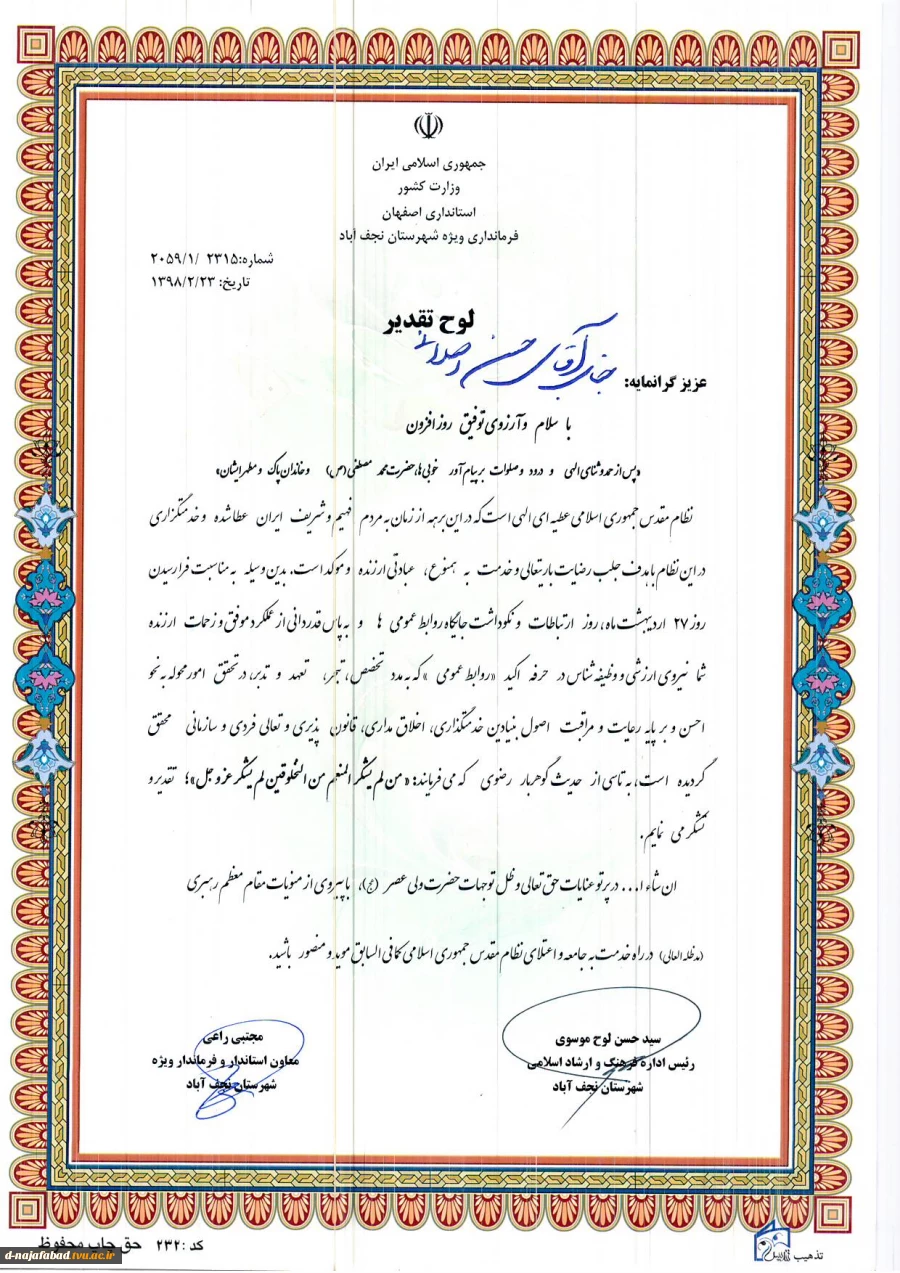 جمهوری اسلامی ایران
وزارت کشور
استانداری اصفهان
فرمانداری ویژه شهرستان نجف آباد
شماره: ۲۳۱۵ /۲۰۵۹/۱
تاریخ: ۱۳۹۸/۲/۲۳
لوح تقدیر
عزیز گرانمایه: جناب آقای حسن
با سلام و آرزوی توفیق روز افزون
«پس از حمد و ثنای الهی و درود و صلوات بر پیام آور خوبی ها، حضرت محمد مصطفی (ص) و خاندان پاک و مطهر ایشان»
نظام مقدس جمهوری اسلامی عطیه ای الهی است که در این برهه از زمان به مردم فهیم و شریف ایران عطا شده و خدمتگزاری
در این نظام با هدف جلب رضایت باریتعالی و خدمت به همنوع، عبادتی ارزنده و موکد است. بدین وسیله به مناسبت فرارسیدن
روز ۲۷ اردیبهشت ماه، روز ارتباطات و نکوداشت جایگاه روابط عمومی ها و به پاس قدردانی از عملکرد موفق و زحمات ارزنده
شما نیروی ارزشی و وظیفه شناس در حرفه اکید «روابط عمومی» که به مدد تخصص، تبحر، تعهد و تدبر، در تحقق امور محوله به نحو
احسن و بر پایه رعایت و مراقبت اصول بنیادین خدمتگذاری، اخلاق مداری، قانون پذیری و تعالی فردی و سازمانی محقق
گردیده است، به تاسی از حدیث گوهربار رضوی که می فرمایند: «من لم یشکر المنعم من المخلوقین لم یشکر عزوجل»؛ تقدیر و
تشکر می نمایم.
ان شاء ا... در پرتو عنایات حق تعالی و ظل توجهات حضرت ولی عصر (عج)، با پیروی از منویات مقام معظم رهبری
(مدظله العالی) در راه خدمت به جامعه و اعتلای نظام مقدس جمهوری اسلامی کمافی السابق موید و منصور باشید.
سید حسن لوح موسوی
رئیس اداره فرهنگ و ارشاد اسلامی
شهرستان نجف آباد
مجتبی راعی
معاون استاندار و فرماندار ویژه
شهرستان نجف آباد
کد :۲۳۲ حق چاپ محفوظ
تذهیب
d-najafabad.tvu.ac.ir